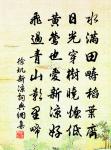 水滿田疇稻葉齊
日光穿樹曉煙低
黃鶯也愛新涼好
飛過青山影裏啼
徐璣新涼詞典網